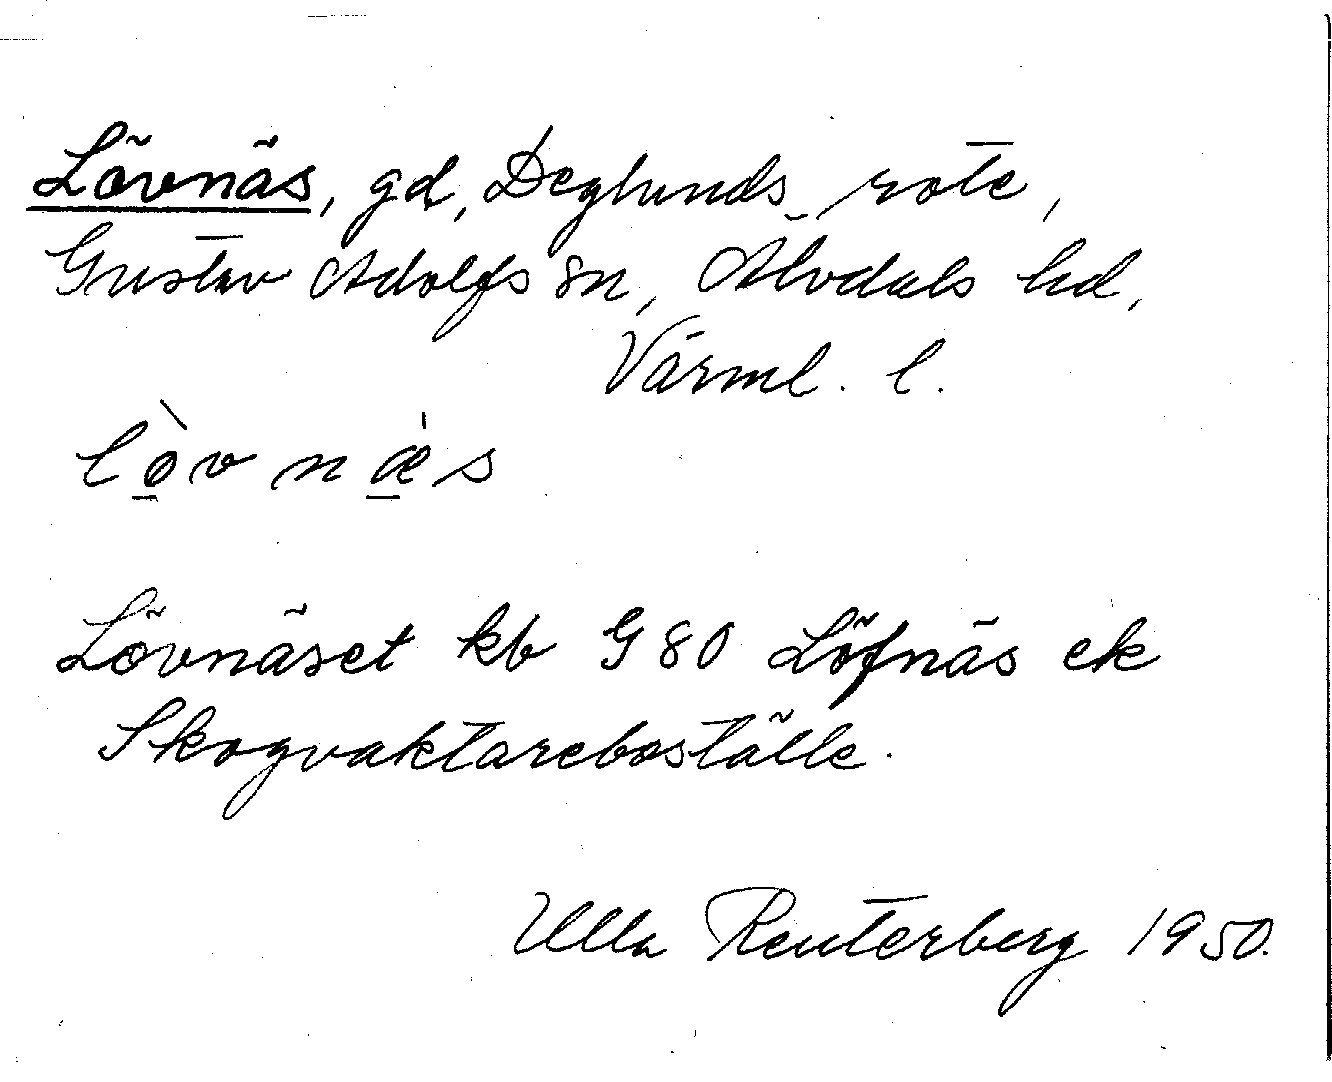 Lövnäs, gd, Deglunds rote,
Gustav Adolfs sn, Älvdals hd,
Värml. l.
lò̱v næ̱̀s
Lövnäset kb G 80 Löfnäs ek
Skogvaktareboställe.
Ulla Reuterberg 1950.